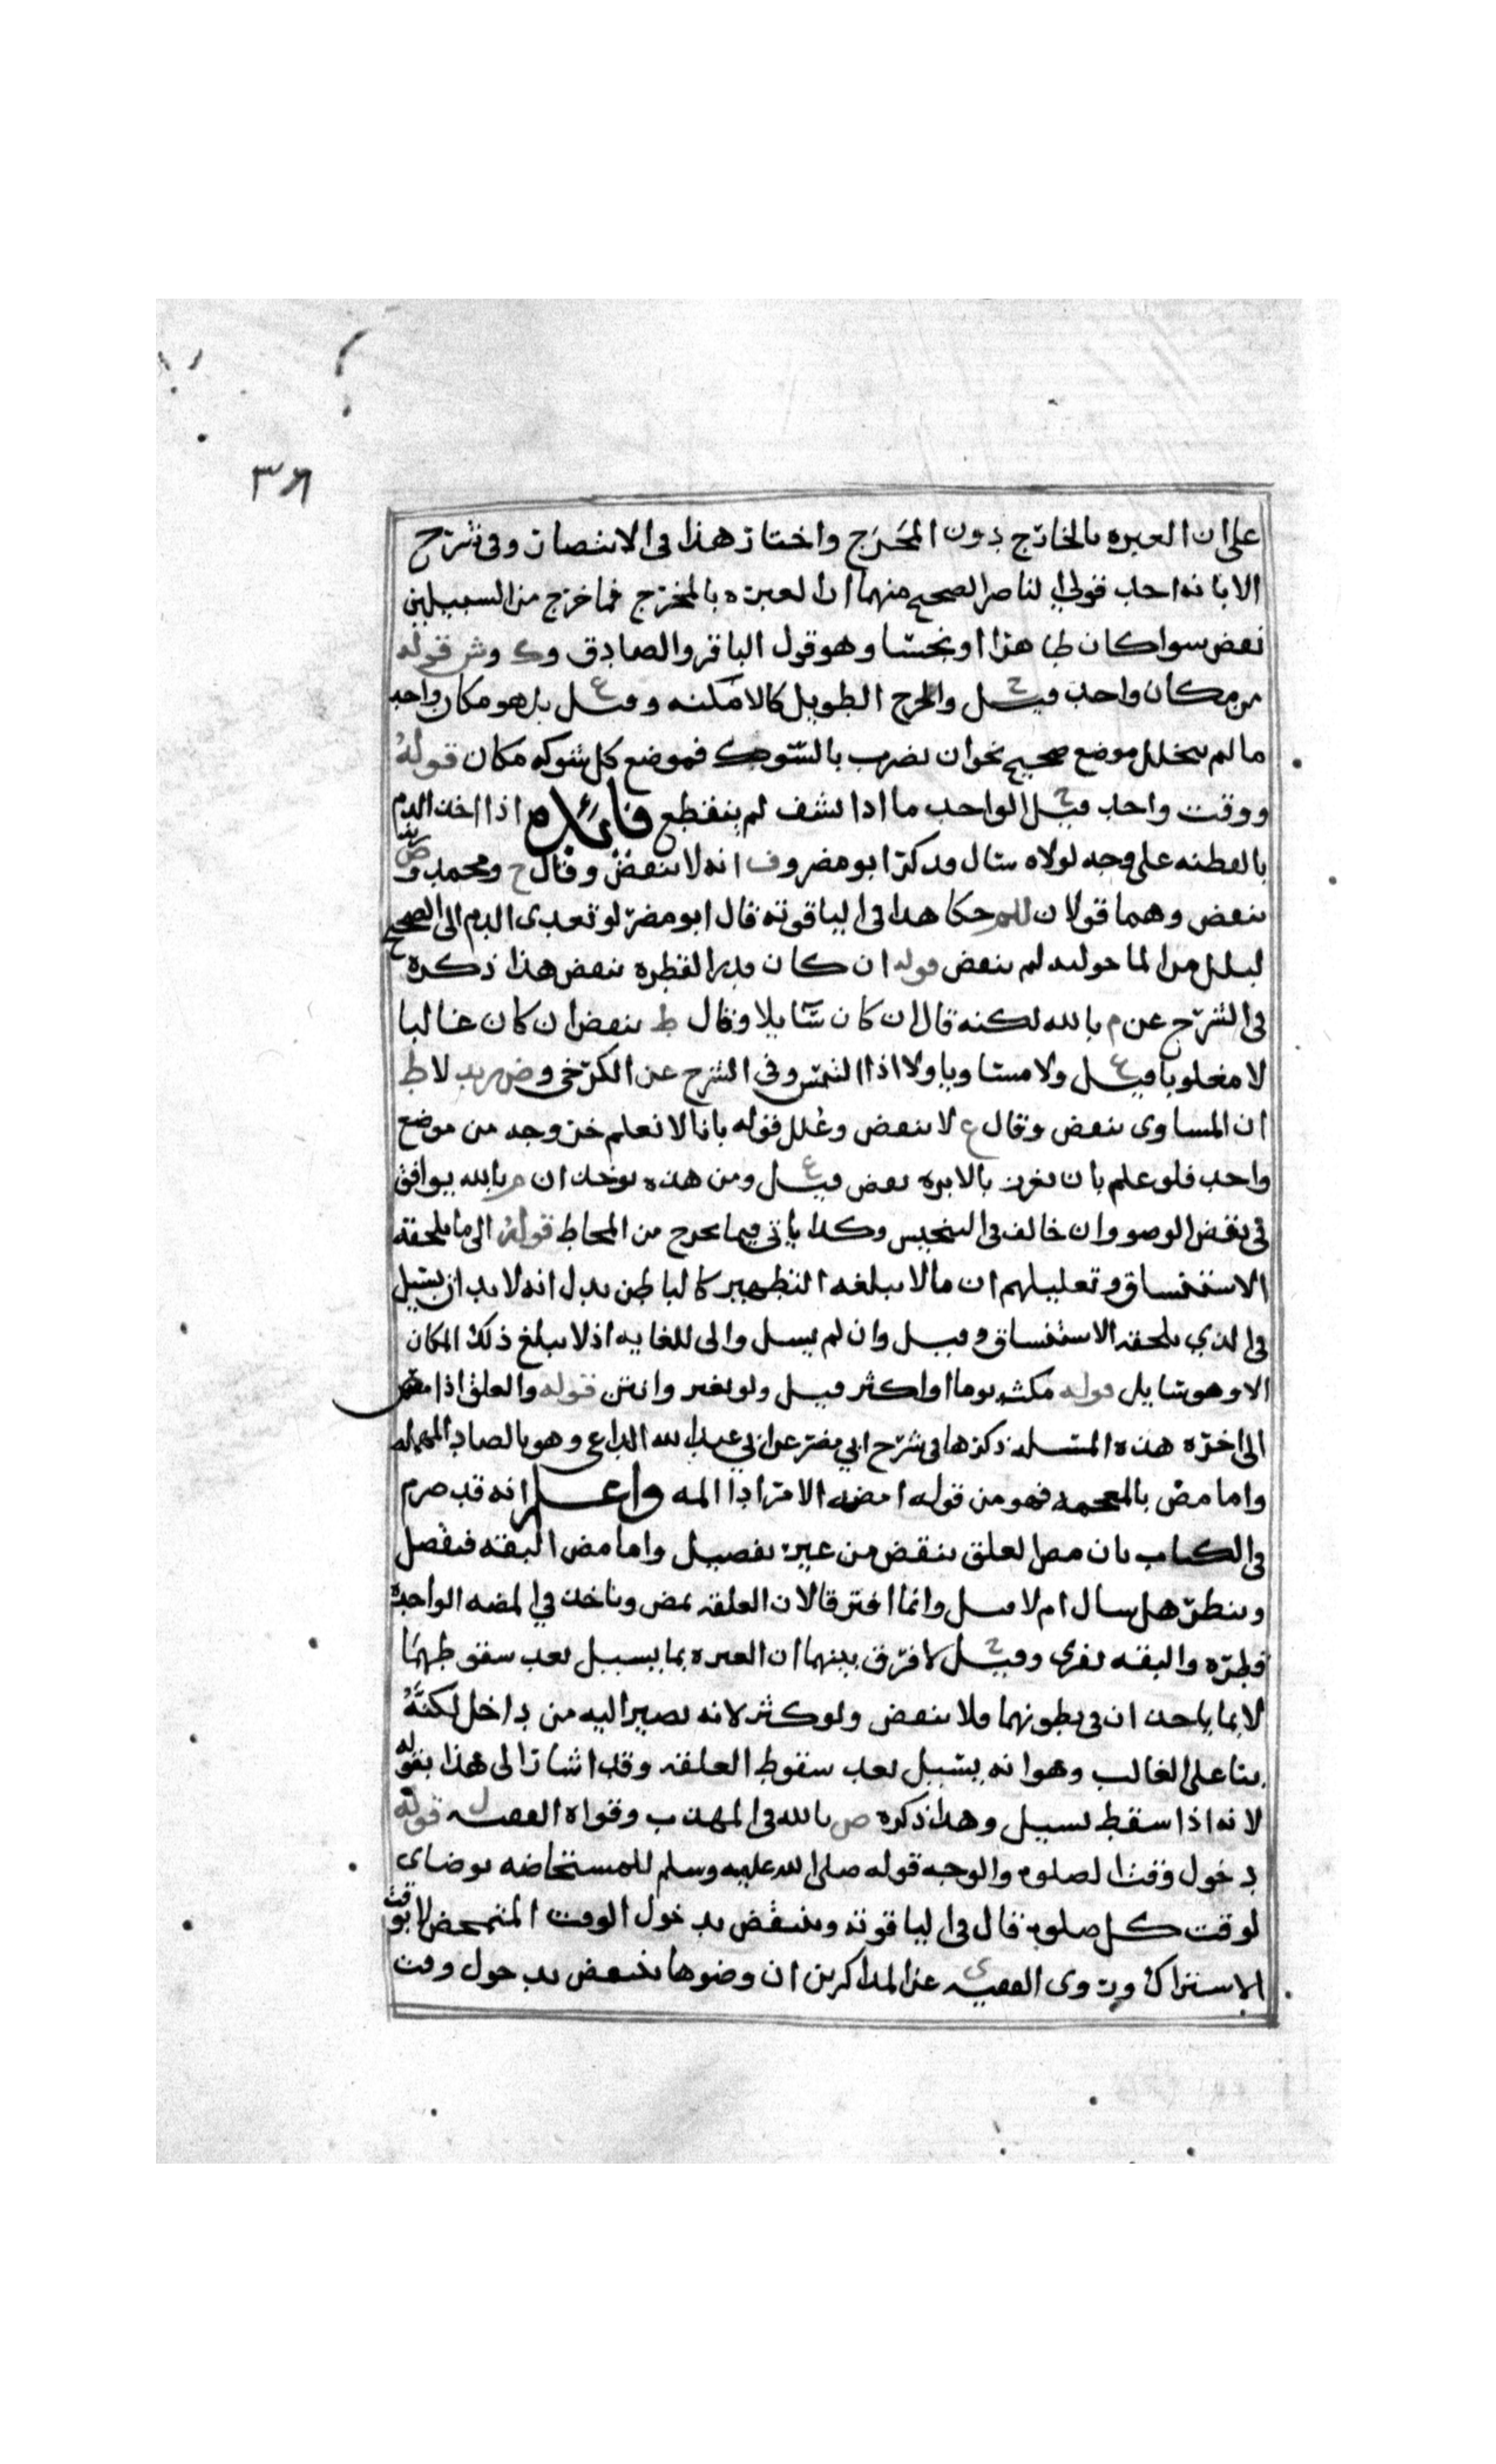 ٣٦
على ان العبره بالخارج دون المخرج واختار هذا في الانتصار وفي شرح
الابانه احد قولي الناصر الصحيح منهما ان العبره بالمخرج فما خرج من السبيلين
نقض سوا كان طاهرا او نجسا وهو قول الباقر والصادق وك وش قوله
من مكان واحد قيل ح والجرح الطويل كالامكنه وقيل ع بل هو مكان واحد
ما لم يتخلل موضع صحيح نحو ان يضرب بالشوك فموضع كل شوكه مكان قوله
ووقت واحد قيل ح الواحد ما اذا نشف لم ينقطع فائده اذا اخذ الدم
بالقطنه على وجه لولاه سال فذكر ابو مضر وف انه لا ينقض وقال ح ومحمد وص
ينقض وهما قولان للم حكا هذا في الياقوته قال ابو مضر لو تعدى الدم الى الصحيح
لبلل من الما حوليه لم ينقض قوله ان كان قدر القطره نقض هذا ذكره
في الشرح عن م بالله لكنه قال ان كان سايلا وقال ط ينقض ان كان غالبا
لا مغلوبا قيل ع ولا مساويا ولا اذا التمس وفي الشرح عن الكرخي وض زيد لا ط
ان المساوى ينقض وقال ع لا ينقض وعلل قوله بانا لا نعلم خروجه من موضع
واحد فلو علم بان يغرز بالابره نقض قيل ع ومن هذه يوخذ ان م بالله يوافق
في نقض الوضو وان خالف في التنجيس وكذا ياتي فيما يخرج من المخاط قوله الى ما يلحقه
الاستنساق وتعليلهم ان ما لا يبلغه التطهير كالباطن يدل انه لا بد ان يسيل
في الذي يلحقه الاستنساق وقيل وان لم يسل والى للغايه اذ لا يبلغ ذلك المكان
الا وهو سايل قوله مكث يوما او اكثر قيل ولو تغير وانتن قوله والعلق اذا مص
الى اخره هذه المسله ذكرها في شرح ابي مضر عن ابي عبد الله الداعي وهو بالصاد المهمله
واما مض بالمعجمه فهو من قوله امضه الامر اذا المه واعلم انه قد صرح
في الكتاب بان مص العلق ينقض من غير تفصيل واما مص البقه ففصل
وينظر هل سال ام لا وانما افترقا لان العلقه تمص وتاخذ في المصه الواحده
قطره والبقه تفرى وقيل ح لا فرق بينهما ان العبره بما يسيل بعد سقوطهما
لا بما ياخذان في بطونهما فلا ينقض ولو كثر لانه يصير اليه من داخل لكنه
بنا على الغالب وهو انه يسيل بعد سقوط العلقه وقد اشار الى هذا بقوله
لانه اذا سقط يسيل وهذا ذكره ص بالله في المهذب وقواه الفقيه ل قوله
دخول وقت الصلوه والوجه قوله صلى الله عليه وسلم للمستحاضه توضاى
لوقت كل صلوه قال في الياقوته وينتقض بدخول الوقت المتمحض لا بوقت
الاشتراك وروى الفقيه ى عن المذاكرين ان وضوها ينتقض بدخول وقت